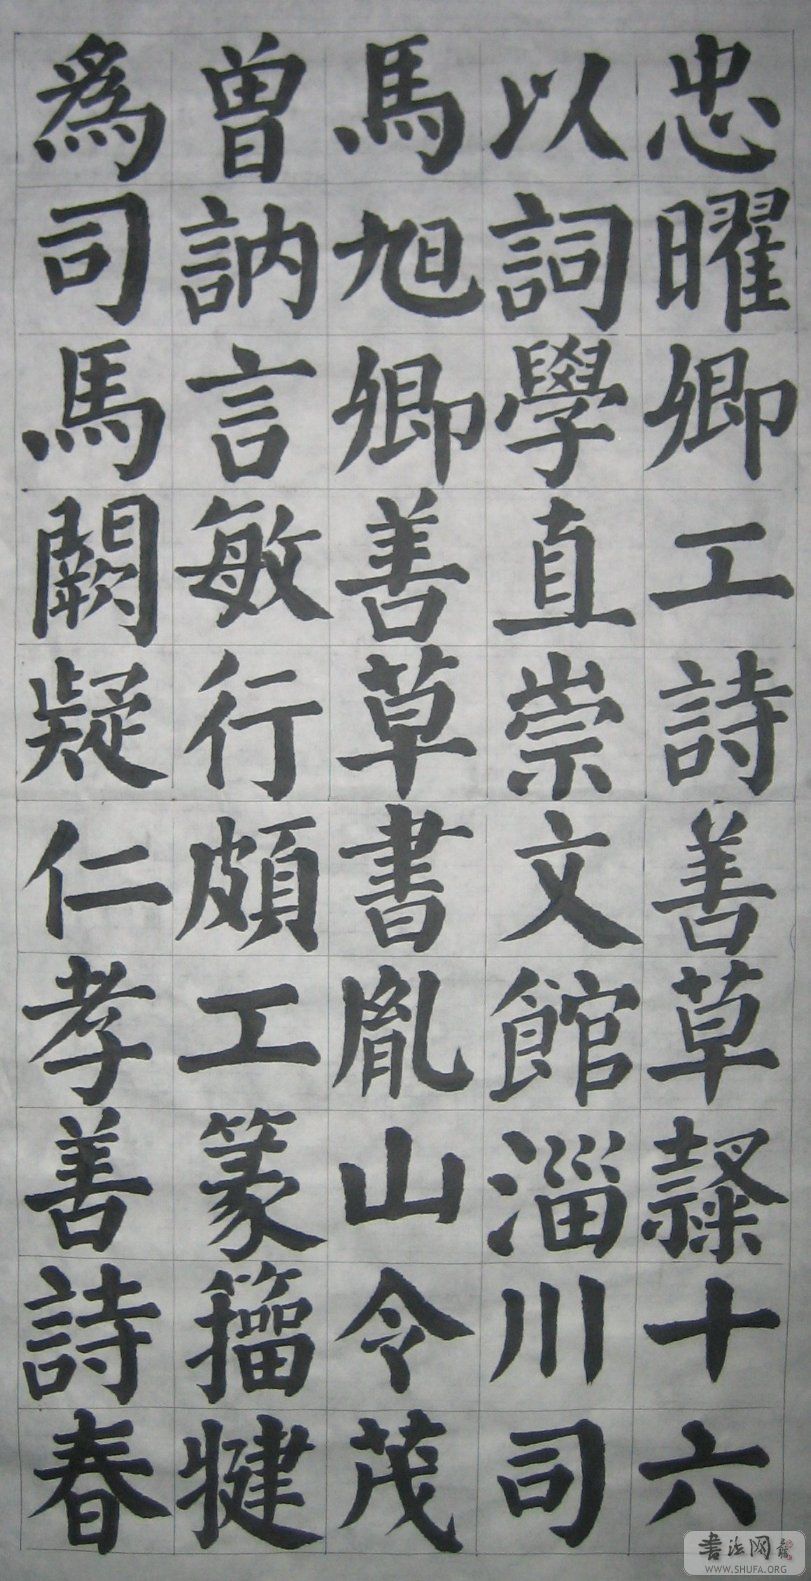 忠曜卿工詩善草隸十六
以詞學直崇文館淄川司
馬旭卿善草書胤山令茂
曽訥言敏行頗工篆籀犍
為司馬闕疑仁孝善詩春
书法网
WWW.SHUFA.ORG